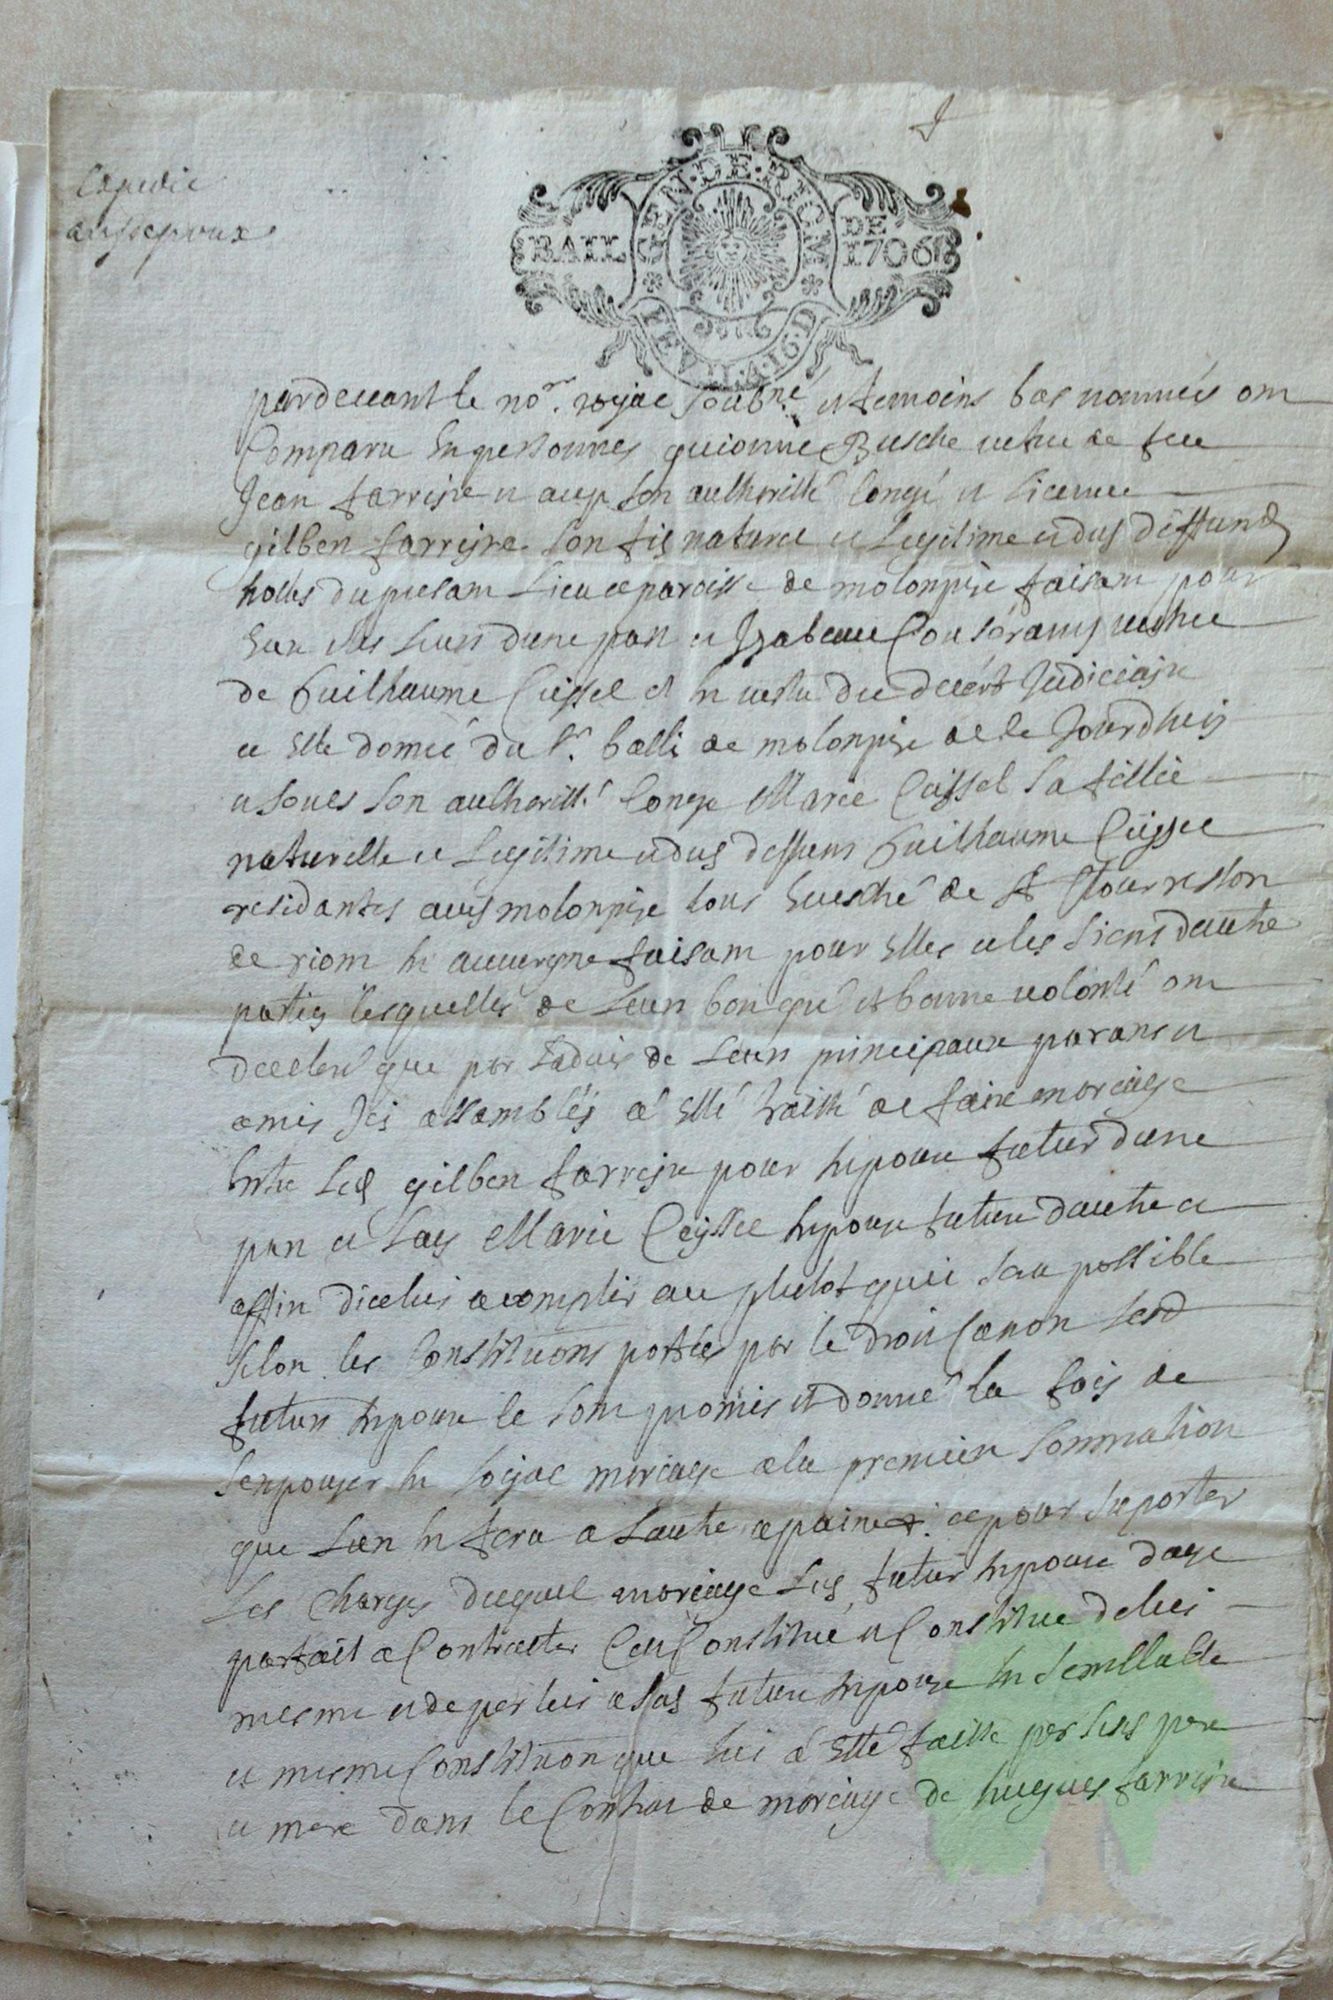 Expedie
ausd epoux
BAIL GEN·DE·RIOM DE 1706
LA FEVIL·A·16·D
pardevant le no.re royal soubné et temoins bas nommés ont
Comparu en personnes guionne Busche vefve de feu
Jean farreyre et aup son authoritté congé et licence
gilbert farreyre son fis naturel et legitime et dud deffund
habs du presant lieu et paroisse de molonpize faisant pour
eux et les leurs dune part et Izabeau vesfve
de Guilhaume Ceissel et en vertu du decért Judiciaire
a elle donné du Sr. balli de molonpize de ce Jourdhuy
et soubs son authoritté conge Marie Ceissel sa fillie
naturelle et legitime et dud deffunt Guilhaume Ceyssel
residantes aud molonpize sous evesché de St flour reson
de riom en auvergne faisant pour elles et les siens dautre
partie lesquelles de leurs bon gré et bonne volonté ont
declere que par ladvis de leurs principaux parans et
amis Jci assamblés a esté traitté de faire mariage
entre led gilbert farreyre pour espoux futur dune
part et lad Marie Ceyssel espouze future dautre et
affin dicelui acomplir au plutot quil sera possible
selon les constitutions portées par le droit canon lesd
futurs espoux se sont promis et donné la fois de
senpouser en loyal mariage a la premiere sommation
que lun en fera a lautre a paine &. et pour suporter
les charges duquel mariage led futur espoux dage
parfait a contracter cest constitué et constitue de lui
mesme et de par lui a sad future espouze en semblable
et mesme constitution que lui a esté faitte par sesd pere
et mere dans le contrat de mariage de hugues farreyre